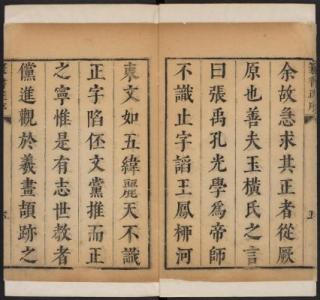 余故急求其正者從厥
原也善夫玉橫氏之言
曰張禹孔光學爲帝師
不識止字謟王鳳栁河
東文如五緯麗天不識
正字陷伾文黨推而正
之寧惟是有志世教者
儻進觀於羲畫頡跡之